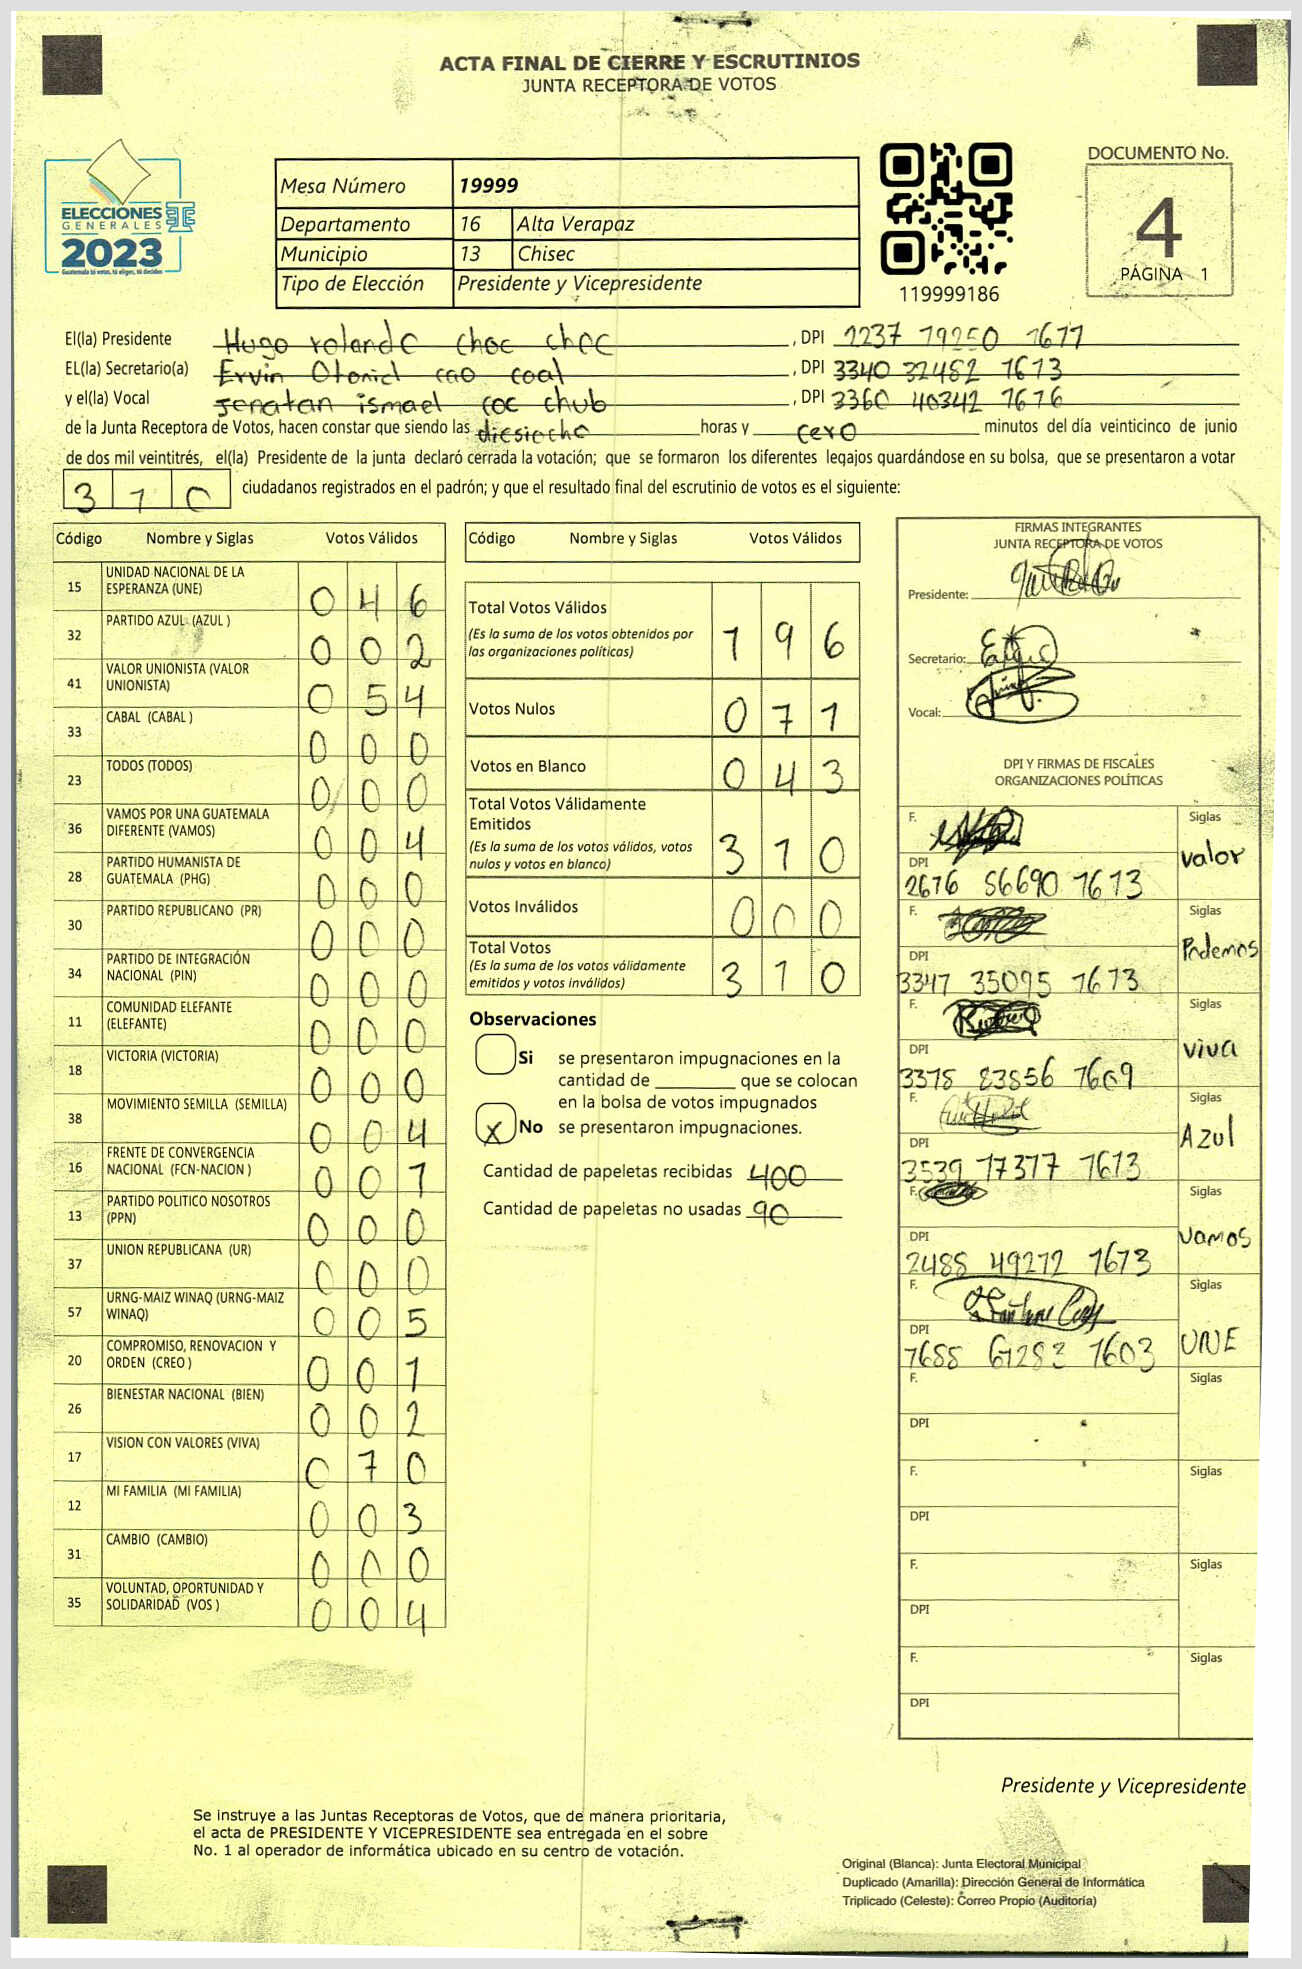 ACTA FINAL DE CIERRE Y ESCRUTINIOS
JUNTA RECEPTORA DE VOTOS
ELECCIONES
GENERALES
2023
Guatemala tú votas, tú eliges, tú decides
Mesa Número 19999
Departamento 16 Alta Verapaz
Municipio 13 Chisec
Tipo de Elección Presidente y Vicepresidente
119999186
DOCUMENTO No.
4
PÁGINA 1
El(la) Presidente Hugo rolando choc choc, DPI 2237 79250 1611
EL(la) Secretario(a) Ervin Otoniel cao coal, DPI 3340 32482 1613
y el(la) Vocal Jonatan ismael coc chub, DPI 3360 40342 1616
de la Junta Receptora de Votos, hacen constar que siendo las diesiocho horas y cero minutos del día veinticinco de junio
de dos mil veintitrés, el(la) Presidente de la junta declaró cerrada la votación; que se formaron los diferentes legajos quardándose en su bolsa, que se presentaron a votar
310 ciudadanos registrados en el padrón; y que el resultado final del escrutinio de votos es el siguiente:
Código Nombre y Siglas Votos Válidos
15 UNIDAD NACIONAL DE LA ESPERANZA (UNE) 046
32 PARTIDO AZUL (AZUL ) 002
41 VALOR UNIONISTA (VALOR UNIONISTA) 054
33 CABAL (CABAL ) 000
23 TODOS (TODOS) 000
36 VAMOS POR UNA GUATEMALA DIFERENTE (VAMOS) 004
28 PARTIDO HUMANISTA DE GUATEMALA (PHG) 000
30 PARTIDO REPUBLICANO (PR) 000
34 PARTIDO DE INTEGRACIÓN NACIONAL (PIN) 000
11 COMUNIDAD ELEFANTE (ELEFANTE) 000
18 VICTORIA (VICTORIA) 000
38 MOVIMIENTO SEMILLA (SEMILLA) 004
16 FRENTE DE CONVERGENCIA NACIONAL (FCN-NACION ) 001
13 PARTIDO POLITICO NOSOTROS (PPN) 000
37 UNION REPUBLICANA (UR) 000
57 URNG-MAIZ WINAQ (URNG-MAIZ WINAQ) 005
20 COMPROMISO, RENOVACION Y ORDEN (CREO ) 001
26 BIENESTAR NACIONAL (BIEN) 002
17 VISION CON VALORES (VIVA) 070
12 MI FAMILIA (MI FAMILIA) 003
31 CAMBIO (CAMBIO) 000
35 VOLUNTAD, OPORTUNIDAD Y SOLIDARIDAD (VOS ) 004
Código Nombre y Siglas Votos Válidos
Total Votos Válidos 196
(Es la suma de los votos obtenidos por
las organizaciones políticas)
Votos Nulos 071
Votos en Blanco 043
Total Votos Válidamente
Emitidos 310
(Es la suma de los votos válidos, votos
nulos y votos en blanco)
Votos Inválidos 000
Total Votos 310
(Es la suma de los votos válidamente
emitidos y votos inválidos)
Observaciones
Si se presentaron impugnaciones en la
cantidad de ________ que se colocan
en la bolsa de votos impugnados
X No se presentaron impugnaciones.
Cantidad de papeletas recibidas 400
Cantidad de papeletas no usadas 90
FIRMAS INTEGRANTES
JUNTA RECEPTORA DE VOTOS
Presidente:
Secretario:
Vocal:
DPI Y FIRMAS DE FISCALES
ORGANIZACIONES POLÍTICAS
F. Siglas
valor
DPI
2676 56690 1613
F. Siglas
Podemos
DPI
3347 35095 1613
F. Siglas
viva
DPI
3378 83856 1609
F. Siglas
Azul
DPI
3539 17377 1613
F. Siglas
vamos
DPI
2488 49272 1613
F. Siglas
UNE
DPI
1603
F. Siglas
DPI
F. Siglas
DPI
F. Siglas
DPI
F. Siglas
DPI
Presidente y Vicepresidente
Se instruye a las Juntas Receptoras de Votos, que de manera prioritaria,
el acta de PRESIDENTE Y VICEPRESIDENTE sea entregada en el sobre
No. 1 al operador de informática ubicado en su centro de votación.
Original (Blanca): Junta Electoral Municipal
Duplicado (Amarilla): Dirección General de Informática
Triplicado (Celeste): Correo Propio (Auditoría)